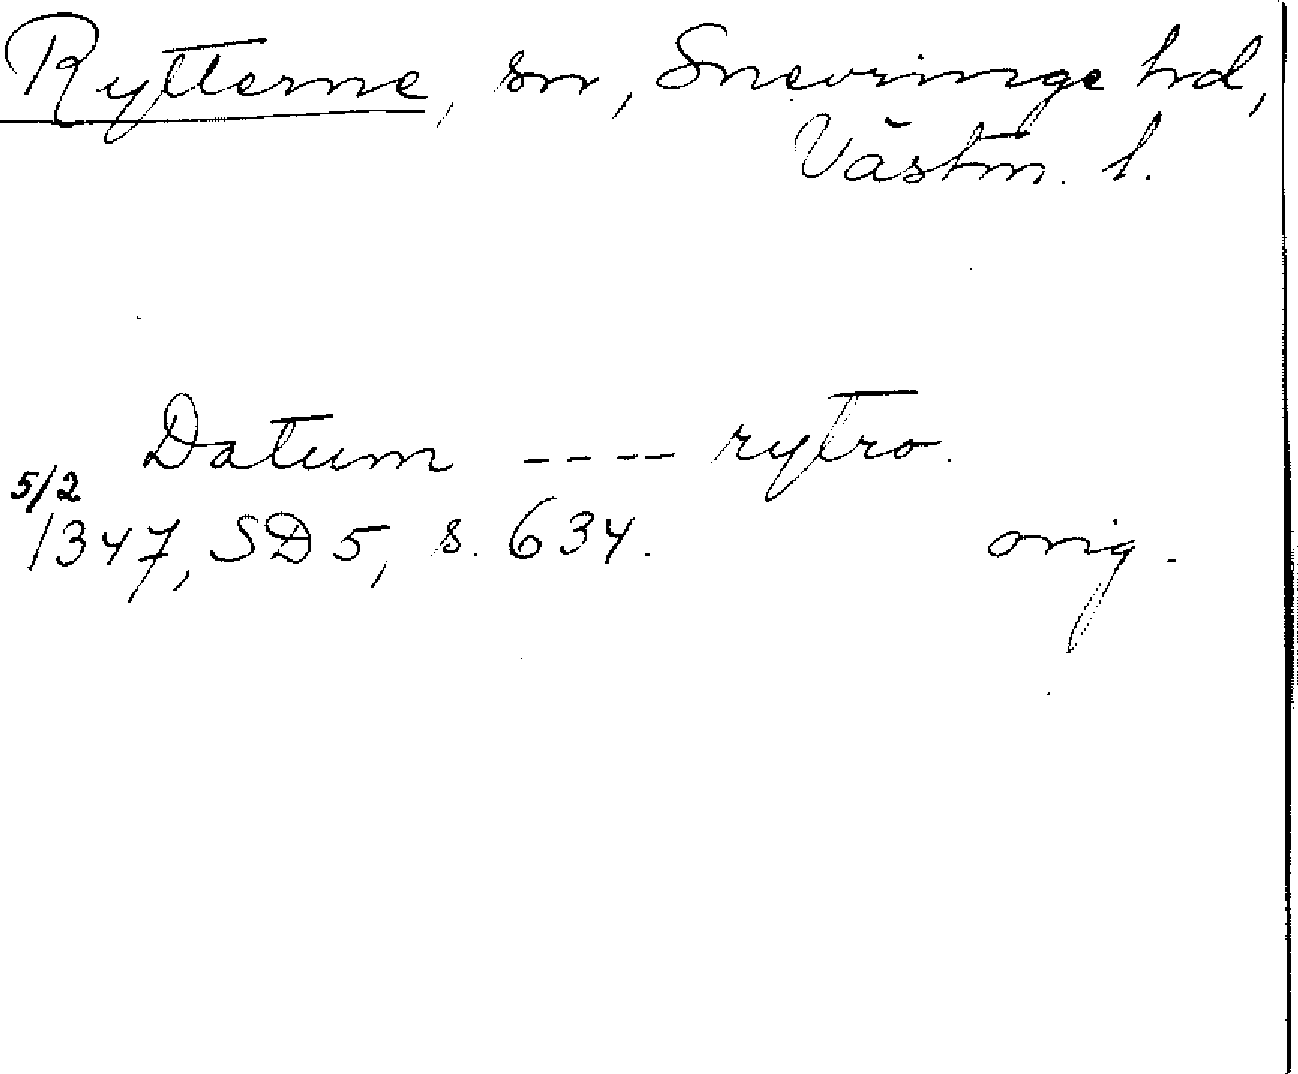 Rytterne, sn, Snevringe hd,
Västm. l.
Datum ---- rytro.
5/2
1347, SD5, s. 634.
orig.